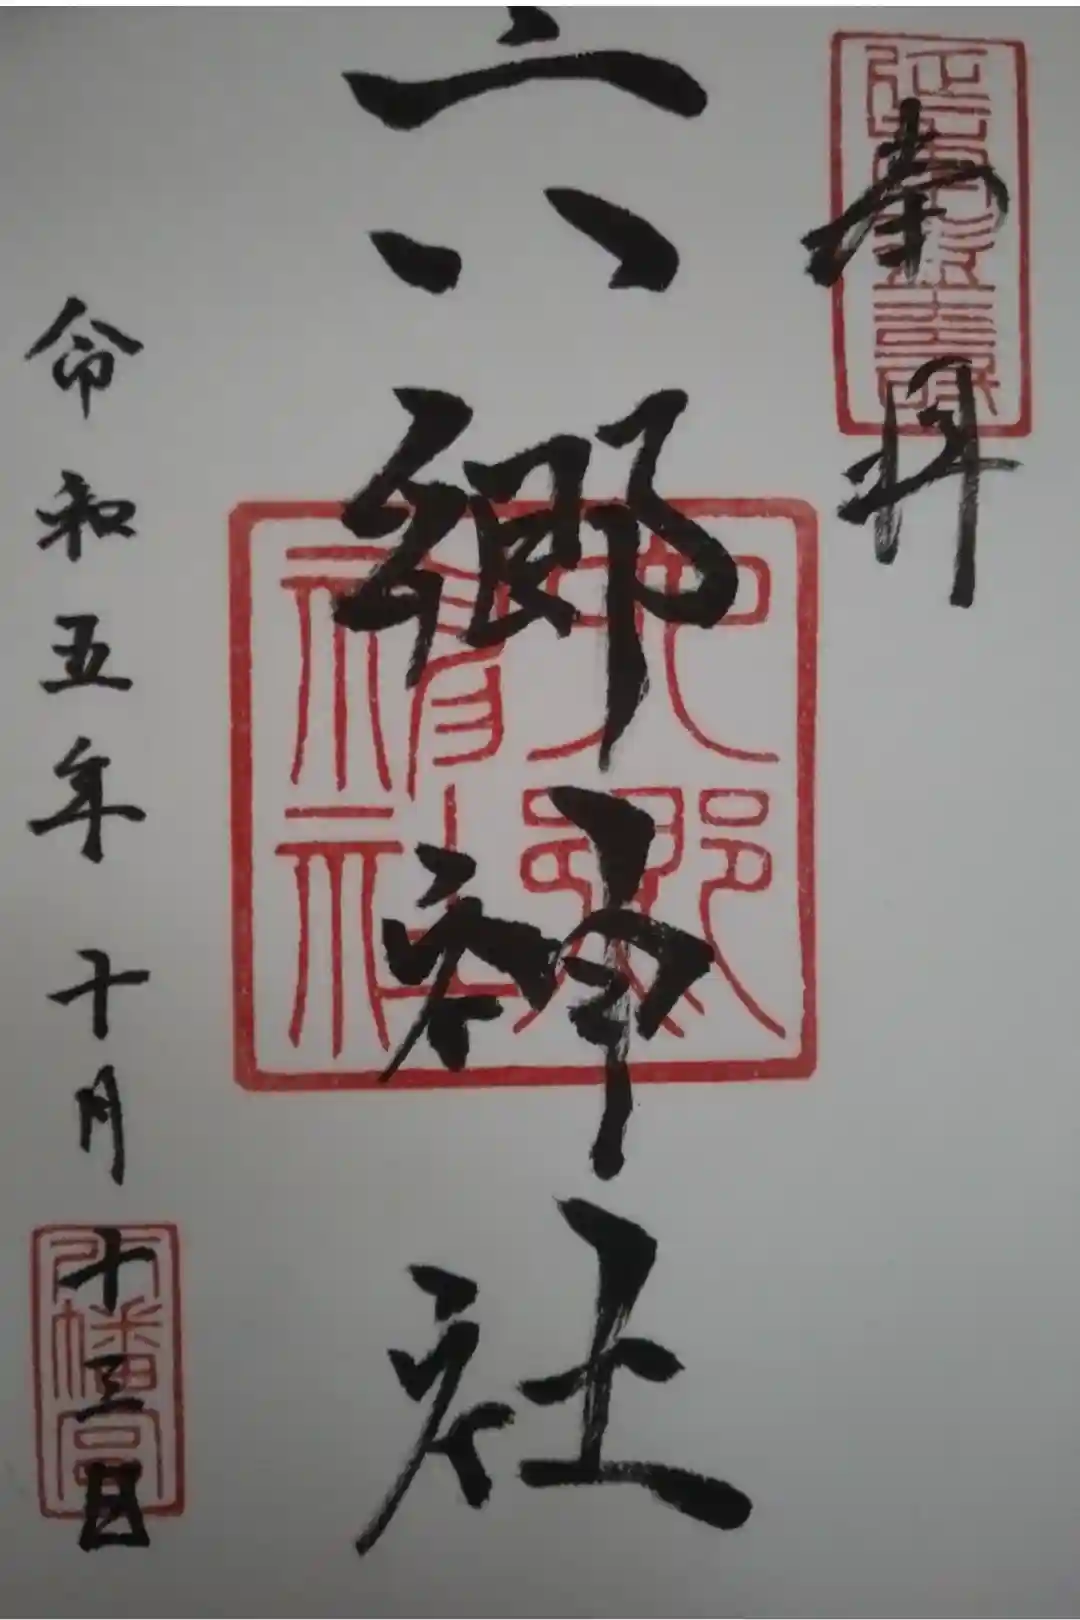 奉拝
六郷神社
六郷神社
令和五年十月十三日
八幡宮